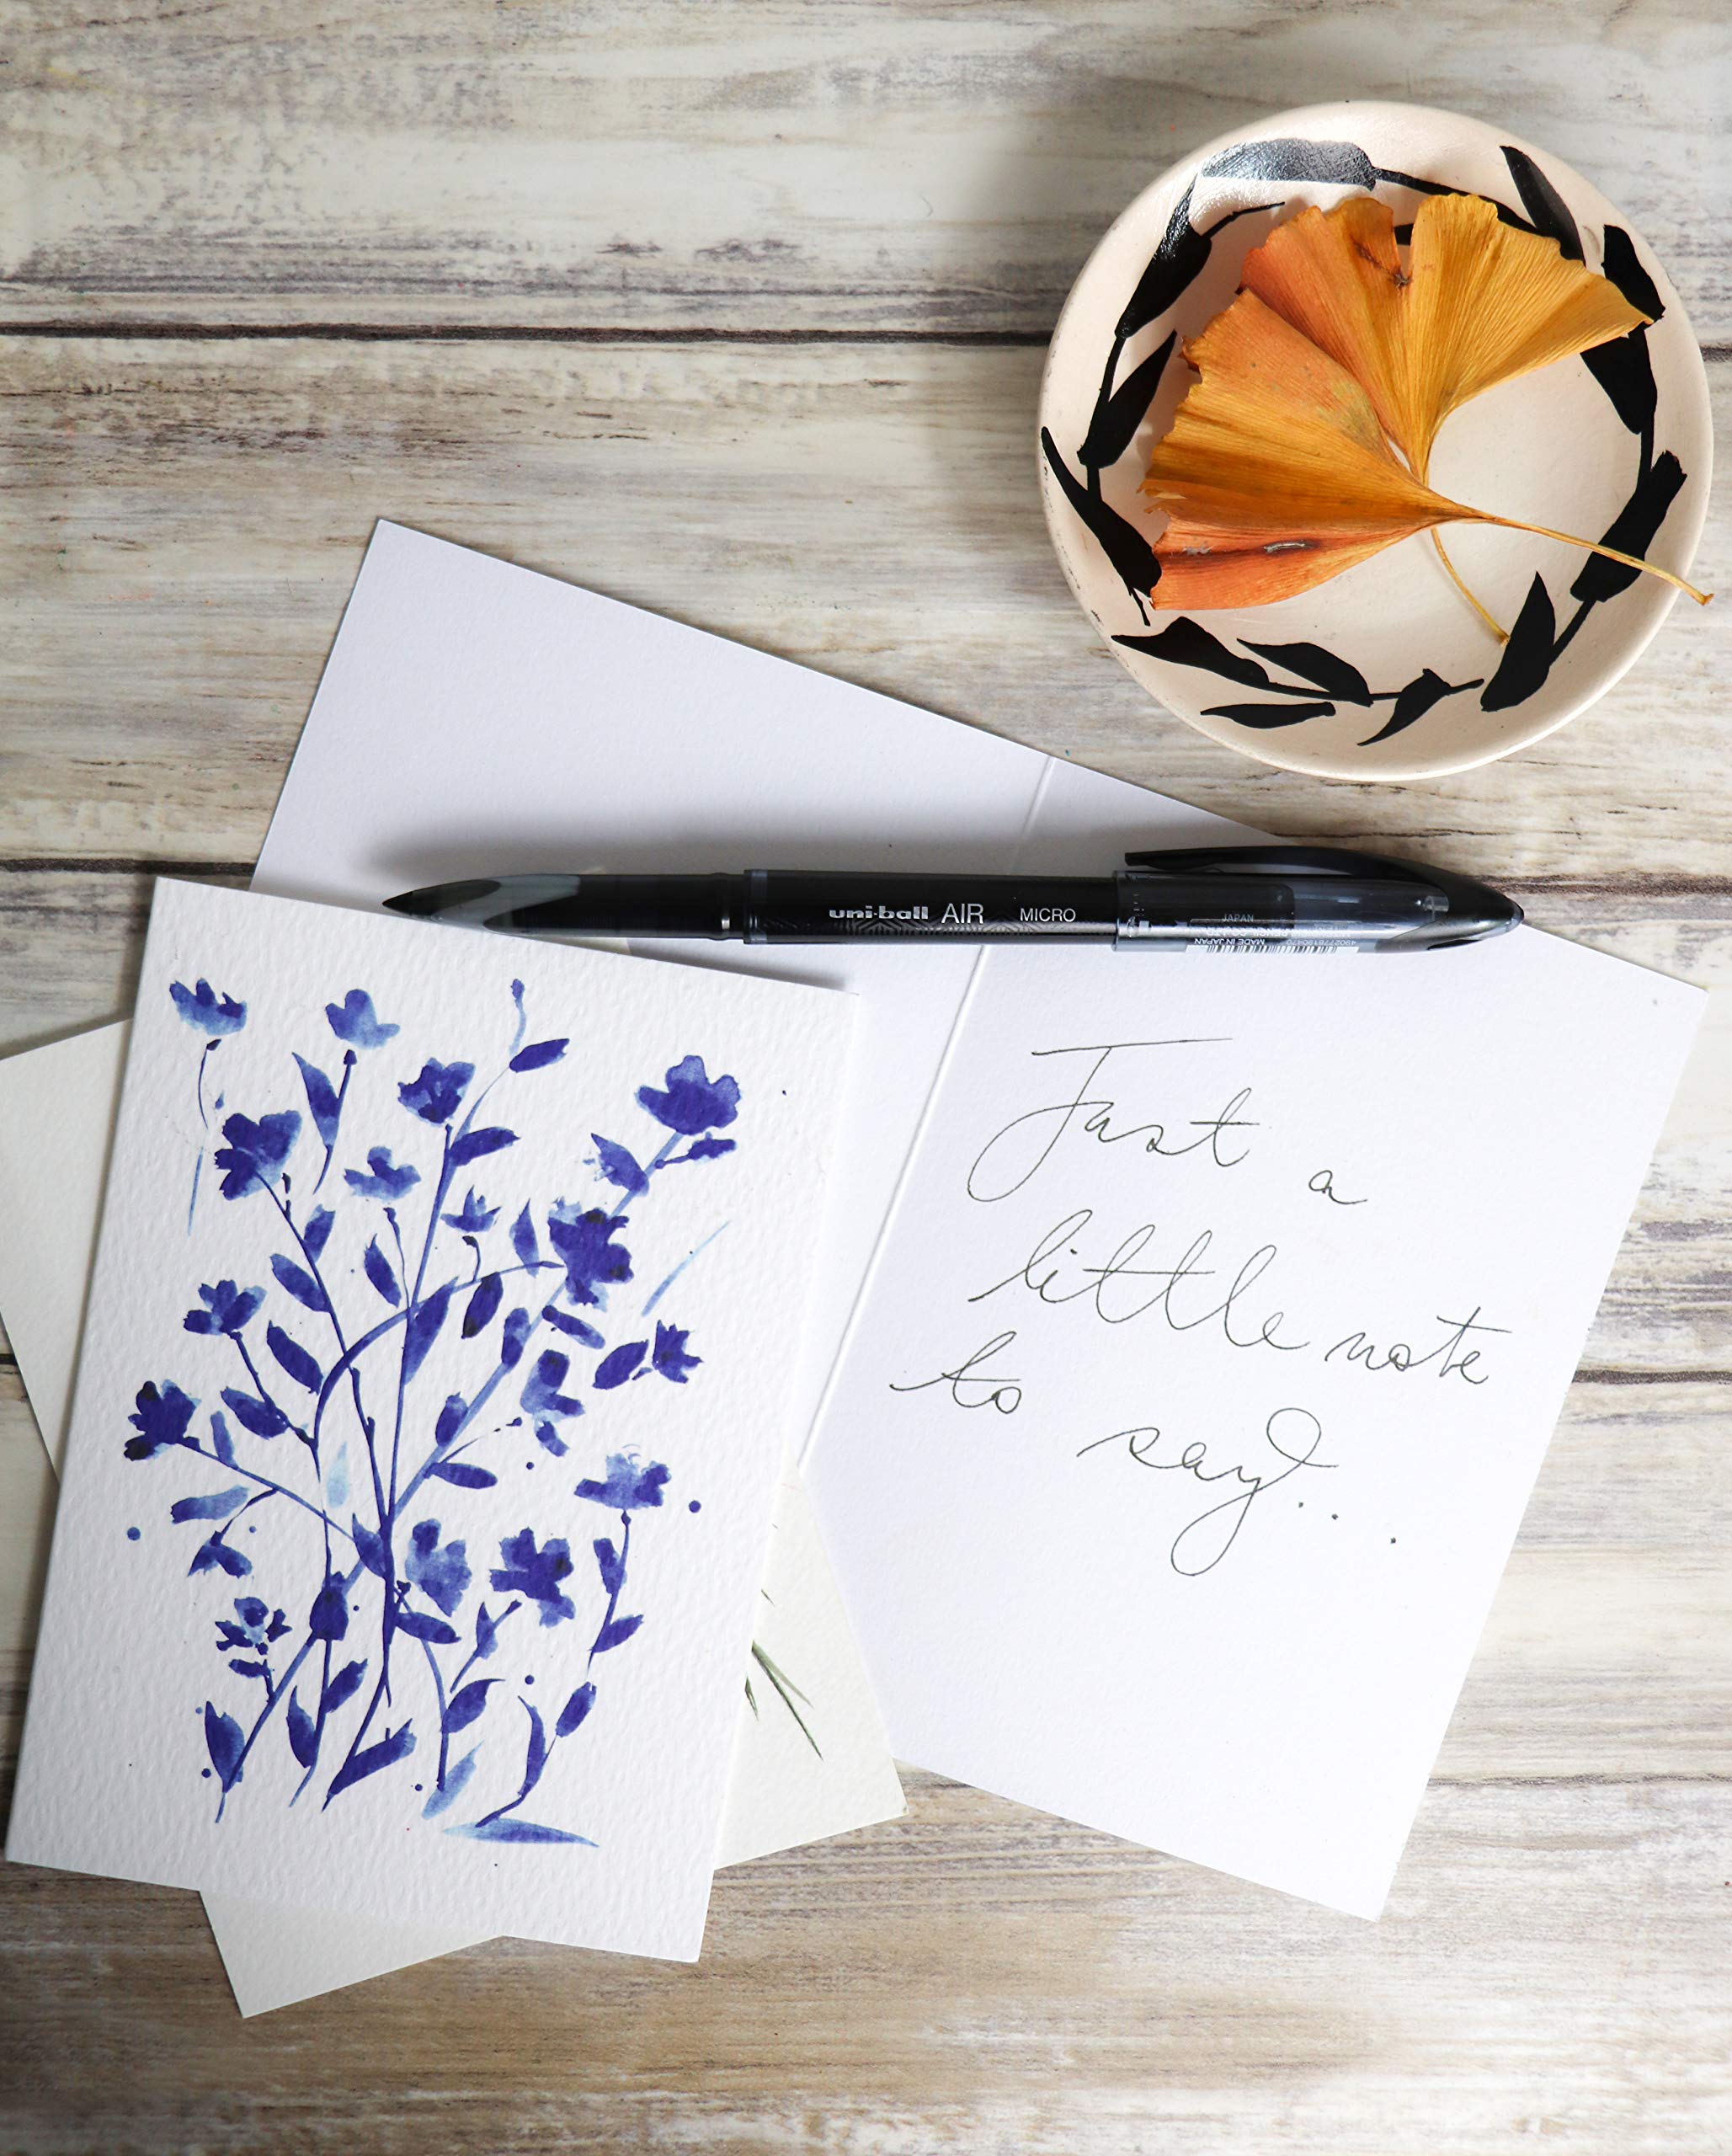 uni-ball AIR MICRO
JAPAN
MADE IN JAPAN
Just a
little note
to say...